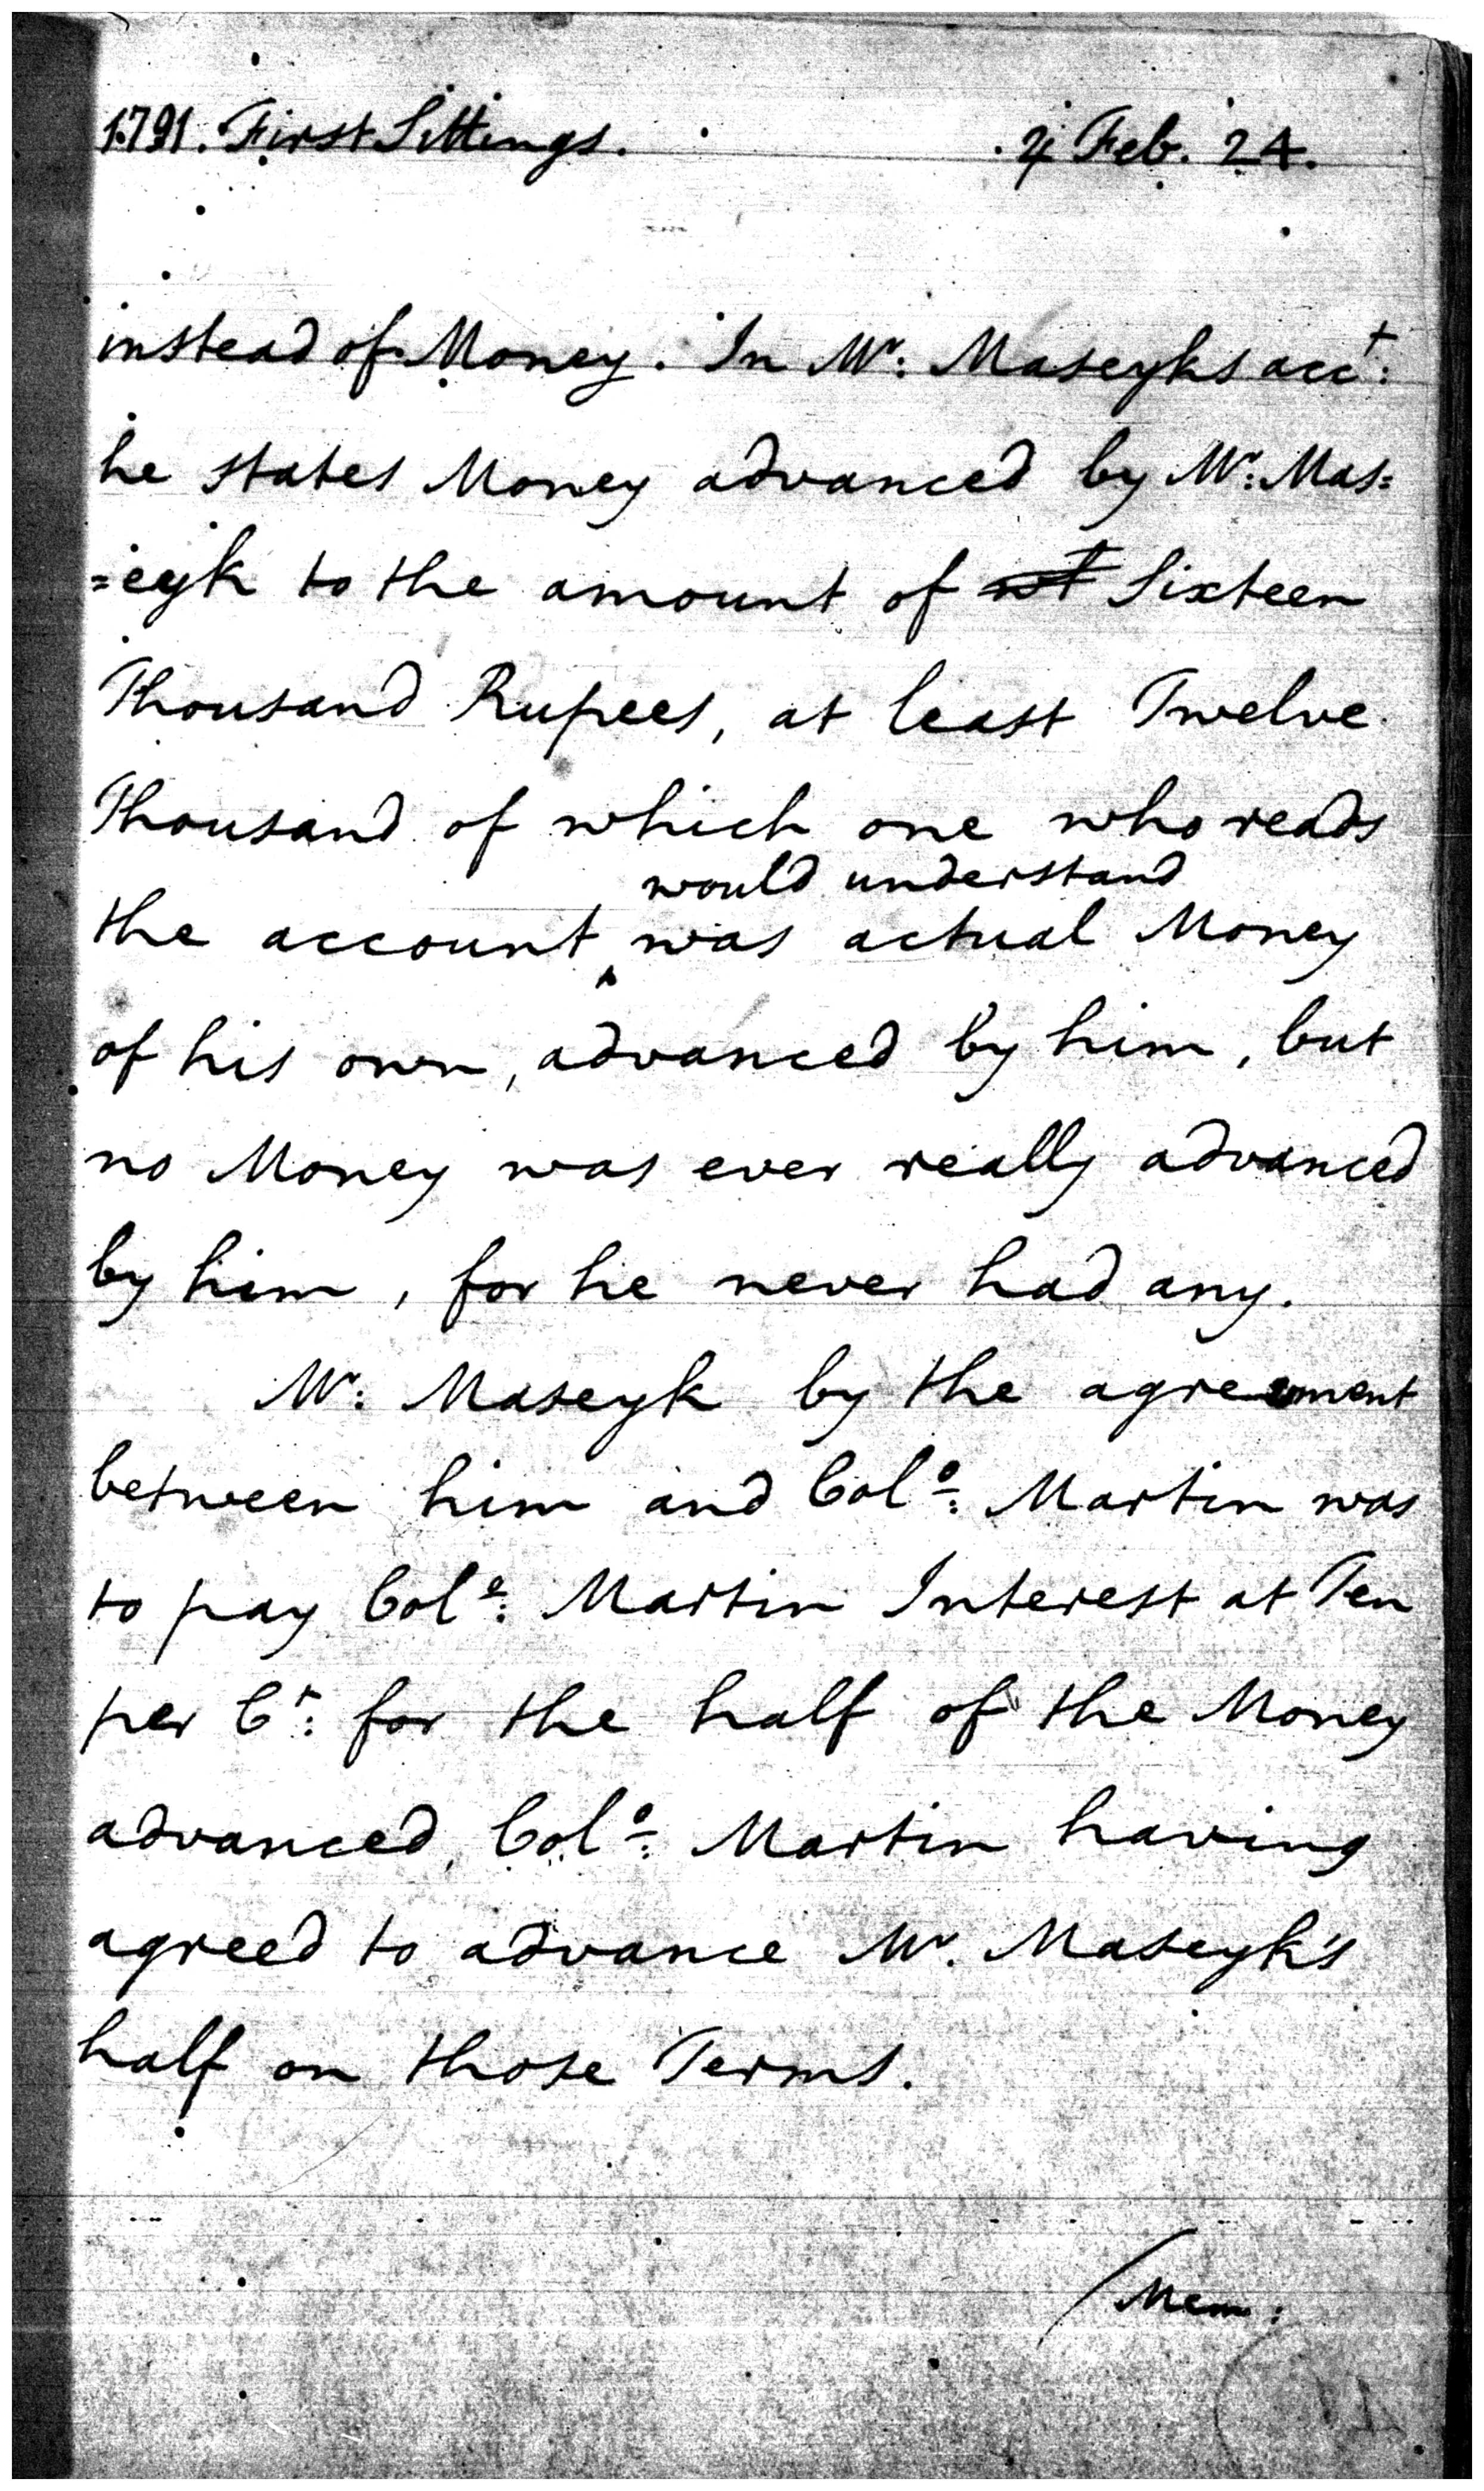 1791. First Sittings. ♃ Feb. 24.
instead of Money. In Mr: Maseyks acct:
he states Money advanced by Mr: Mas=
=eyk to the amount of Sixteen
Thousand Rupees, at least Twelve
Thousand of which one who reads
would understand
the account ‸ was actual Money
of his own, advanced by him, but
no Money was ever really advanced
by him, for he never had any.
Mr: Maseyk by the agreement
between him and Colo: Martin was
to pay Colo: Martin Interest at Ten
per Ct: for the half of the Money
advanced, Colo: Martin having
agreed to advance Mr. Maseyk's
half on those Terms.
/Mem: